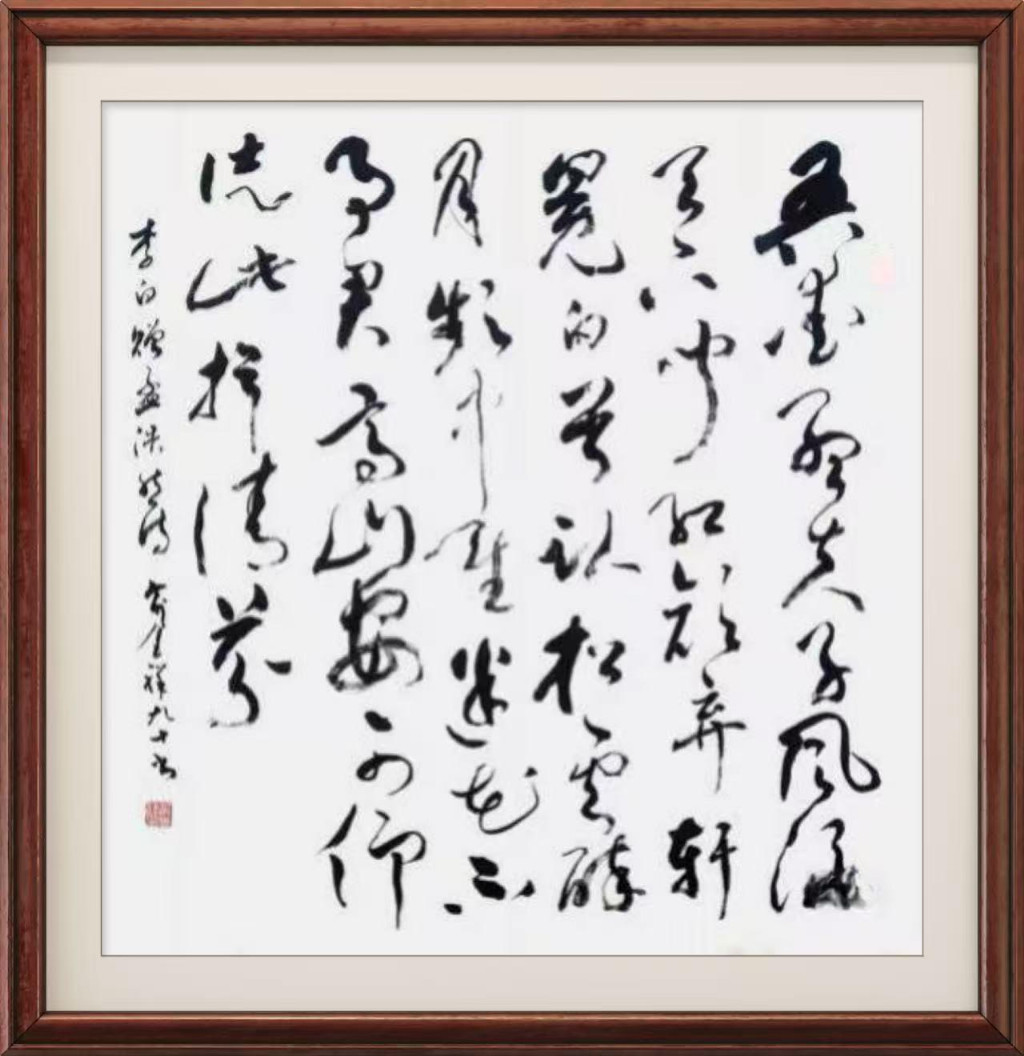 吾爱孟夫子风流
天下闻红颜弃轩
冕白首卧松雲醉
月频中聖迷花不
事君高山安可仰
徒此揖清芬
李白赠孟浩然诗 祥九十书